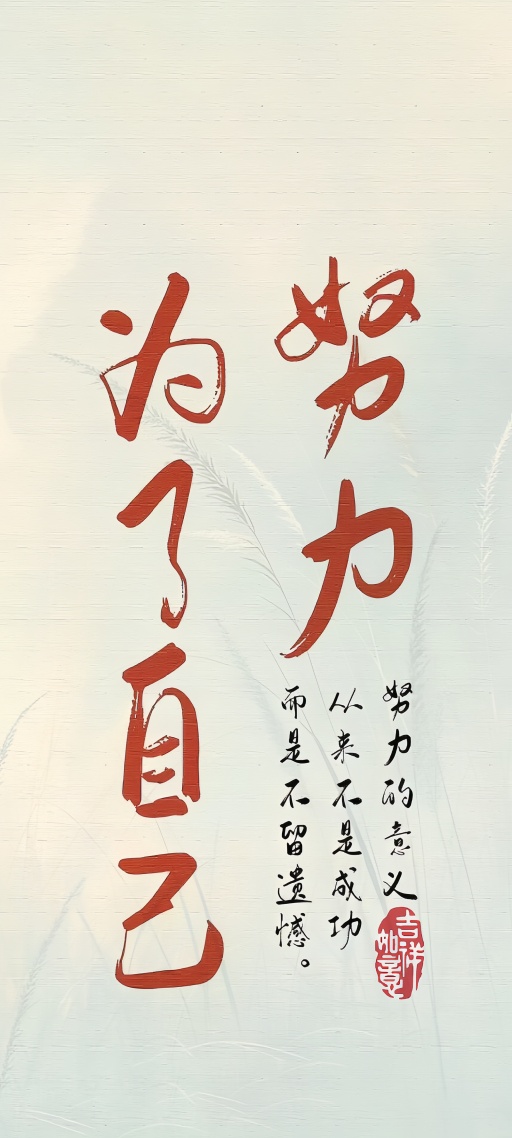 努力
为了自己
努力的意义
从来不是成功
而是不留遗憾。
吉祥
如意